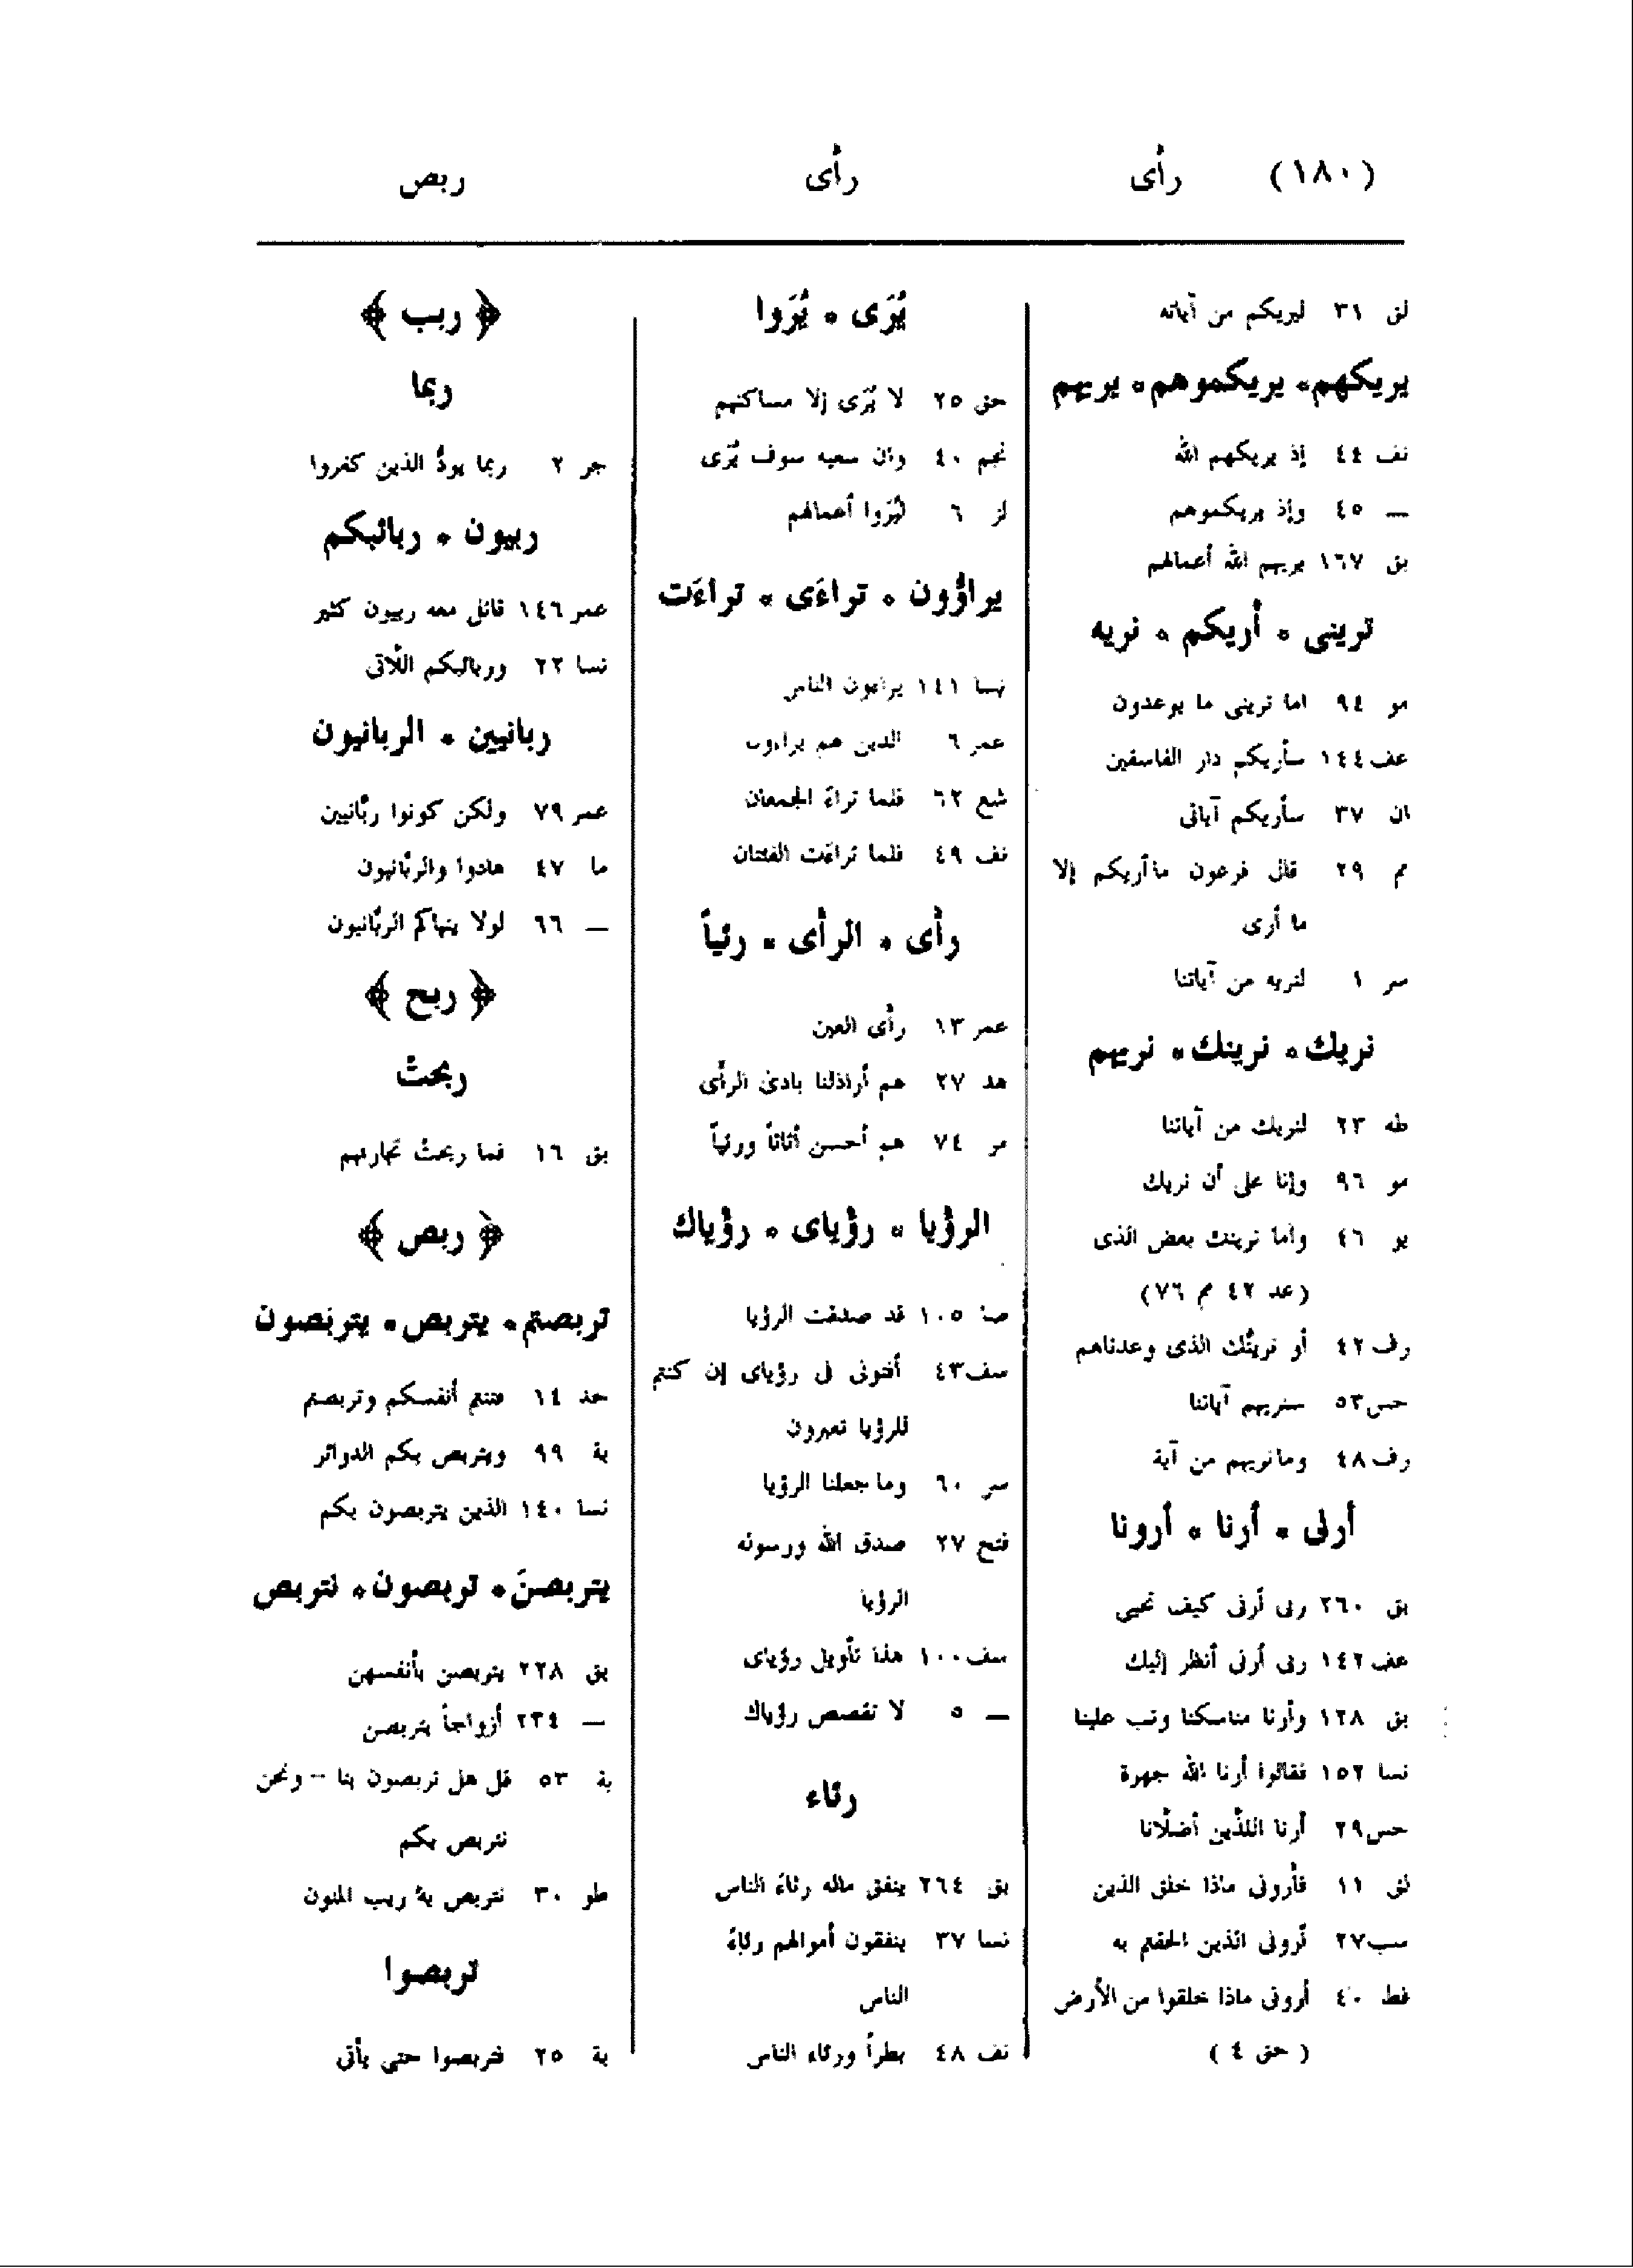 (١٨٠) رأى رأى ربص
لق ٣١ ليريكم من آياته
يريكهم * يريكموهم * يريهم
نف ٤٤ إذ يريكهم الله
— ٤٥ وإذ يريكموهم
بق ١٦٧ يريهم الله أعمالهم
ترينى * أريكم * نريه
مو ٩٤ اما ترينى ما يوعدون
عف ١٤٤ سأريكم دار الفاسقين
ان ٣٧ سأريكم آياتى
مم ٢٩ قال فرعون ما أريكم إلا
ما أرى
سر ١ لنريه من آياتنا
نريك * نرينك * نريهم
طه ٢٣ لنريك من آياتنا
مو ٩٦ وإنا على أن نريك
يو ٤٦ وأما نرينك بعض الذى
(عد ٤٢ مم ٧٦)
رف ٤٢ أو نرينّك الذى وعدناهم
حس ٥٣ سنريهم آياتنا
رف ٤٨ وما نريهم من آية
أرنى * أرنا * أرونا
بق ٢٦٠ ربى أرنى كيف تحيى
عف ١٤٢ ربى أرنى أنظر إليك
بق ١٢٨ وأرنا مناسكنا وتب علينا
نسا ١٥٢ فقالوا أرنا الله جهرة
حس ٢٩ أرنا اللذّين أضلّانا
لق ١١ فأرونى ماذا خلق الذين
سب ٢٧ أرونى الذين الحقتم به
فط ٤٠ أرونى ماذا خلقوا من الأرض
( حق ٤ )
يُرَى * يُرَوا
حق ٢٥ لا يُرَى إلا مساكنهم
نجم ٤٠ وان سعيه سوف يُرَى
لز ٦ ليُرَوا أعمالهم
يراؤون * تراءَى * تراءَت
نسا ١٤١ يراءون الناس
عمر ٦ الذين هم يراءون
شع ٦٢ فلما تراءَ الجمعان
نف ٤٩ فلما تراءَت الفئتان
رأى * الرأى * رئياً
عمر ١٣ رأى العين
هد ٢٧ هم أراذلنا بادئ الرأى
مر ٧٤ هم أحسن أثاثاً ورئياً
الرؤيا * رؤياى * رؤياك
صا ١٠٥ قد صدقت الرؤيا
سف ٤٣ أفتونى فى رؤياى إن كنتم
للرؤيا تعبرون
سر ٦٠ وما جعلنا الرؤيا
فتح ٢٧ صدق الله ورسوله
الرؤيا
سف ١٠٠ هذا تأويل رؤياى
— ٥ لا تقصص رؤياك
رئاء
بق ٢٦٤ ينفق ماله رئاءَ الناس
نسا ٣٧ ينفقون أموالهم رئاءَ
الناس
نف ٤٨ بطراً ورئاء الناس
﴿ ربب ﴾
ربما
جر ٢ ربما يودُّ الذين كفروا
ربيون * ربائبكم
عمر ١٤٦ قاتل معه ربيون كثير
نسا ٢٢ وربائبكم اللّاتى
ربانيين * الربانيون
عمر ٧٩ ولكن كونوا ربّانيين
ما ٤٧ هادوا والربّانيون
— ٦٦ لولا ينهاكم الربّانيون
﴿ ربح ﴾
ربحتْ
بق ١٦ فما ربحتْ تجارتهم
﴿ ربص ﴾
تربصتم * يتربص * يتربصون
حد ١٤ فتنتم أنفسكم وتربصتم
بة ٩٩ ويتربص بكم الدوائر
نسا ١٤٠ الذين يتربصون بكم
يتربصنَ * تربصون * نتربص
بق ٢٢٨ يتربصن بأنفسهن
— ٢٣٤ أزواجاً يتربصن
بة ٥٣ قل هل تربصون بنا – ونحن
نتربص بكم
طو ٣٠ نتربص به ريب المنون
تربصوا
بة ٢٥ فتربصوا حتى يأتى